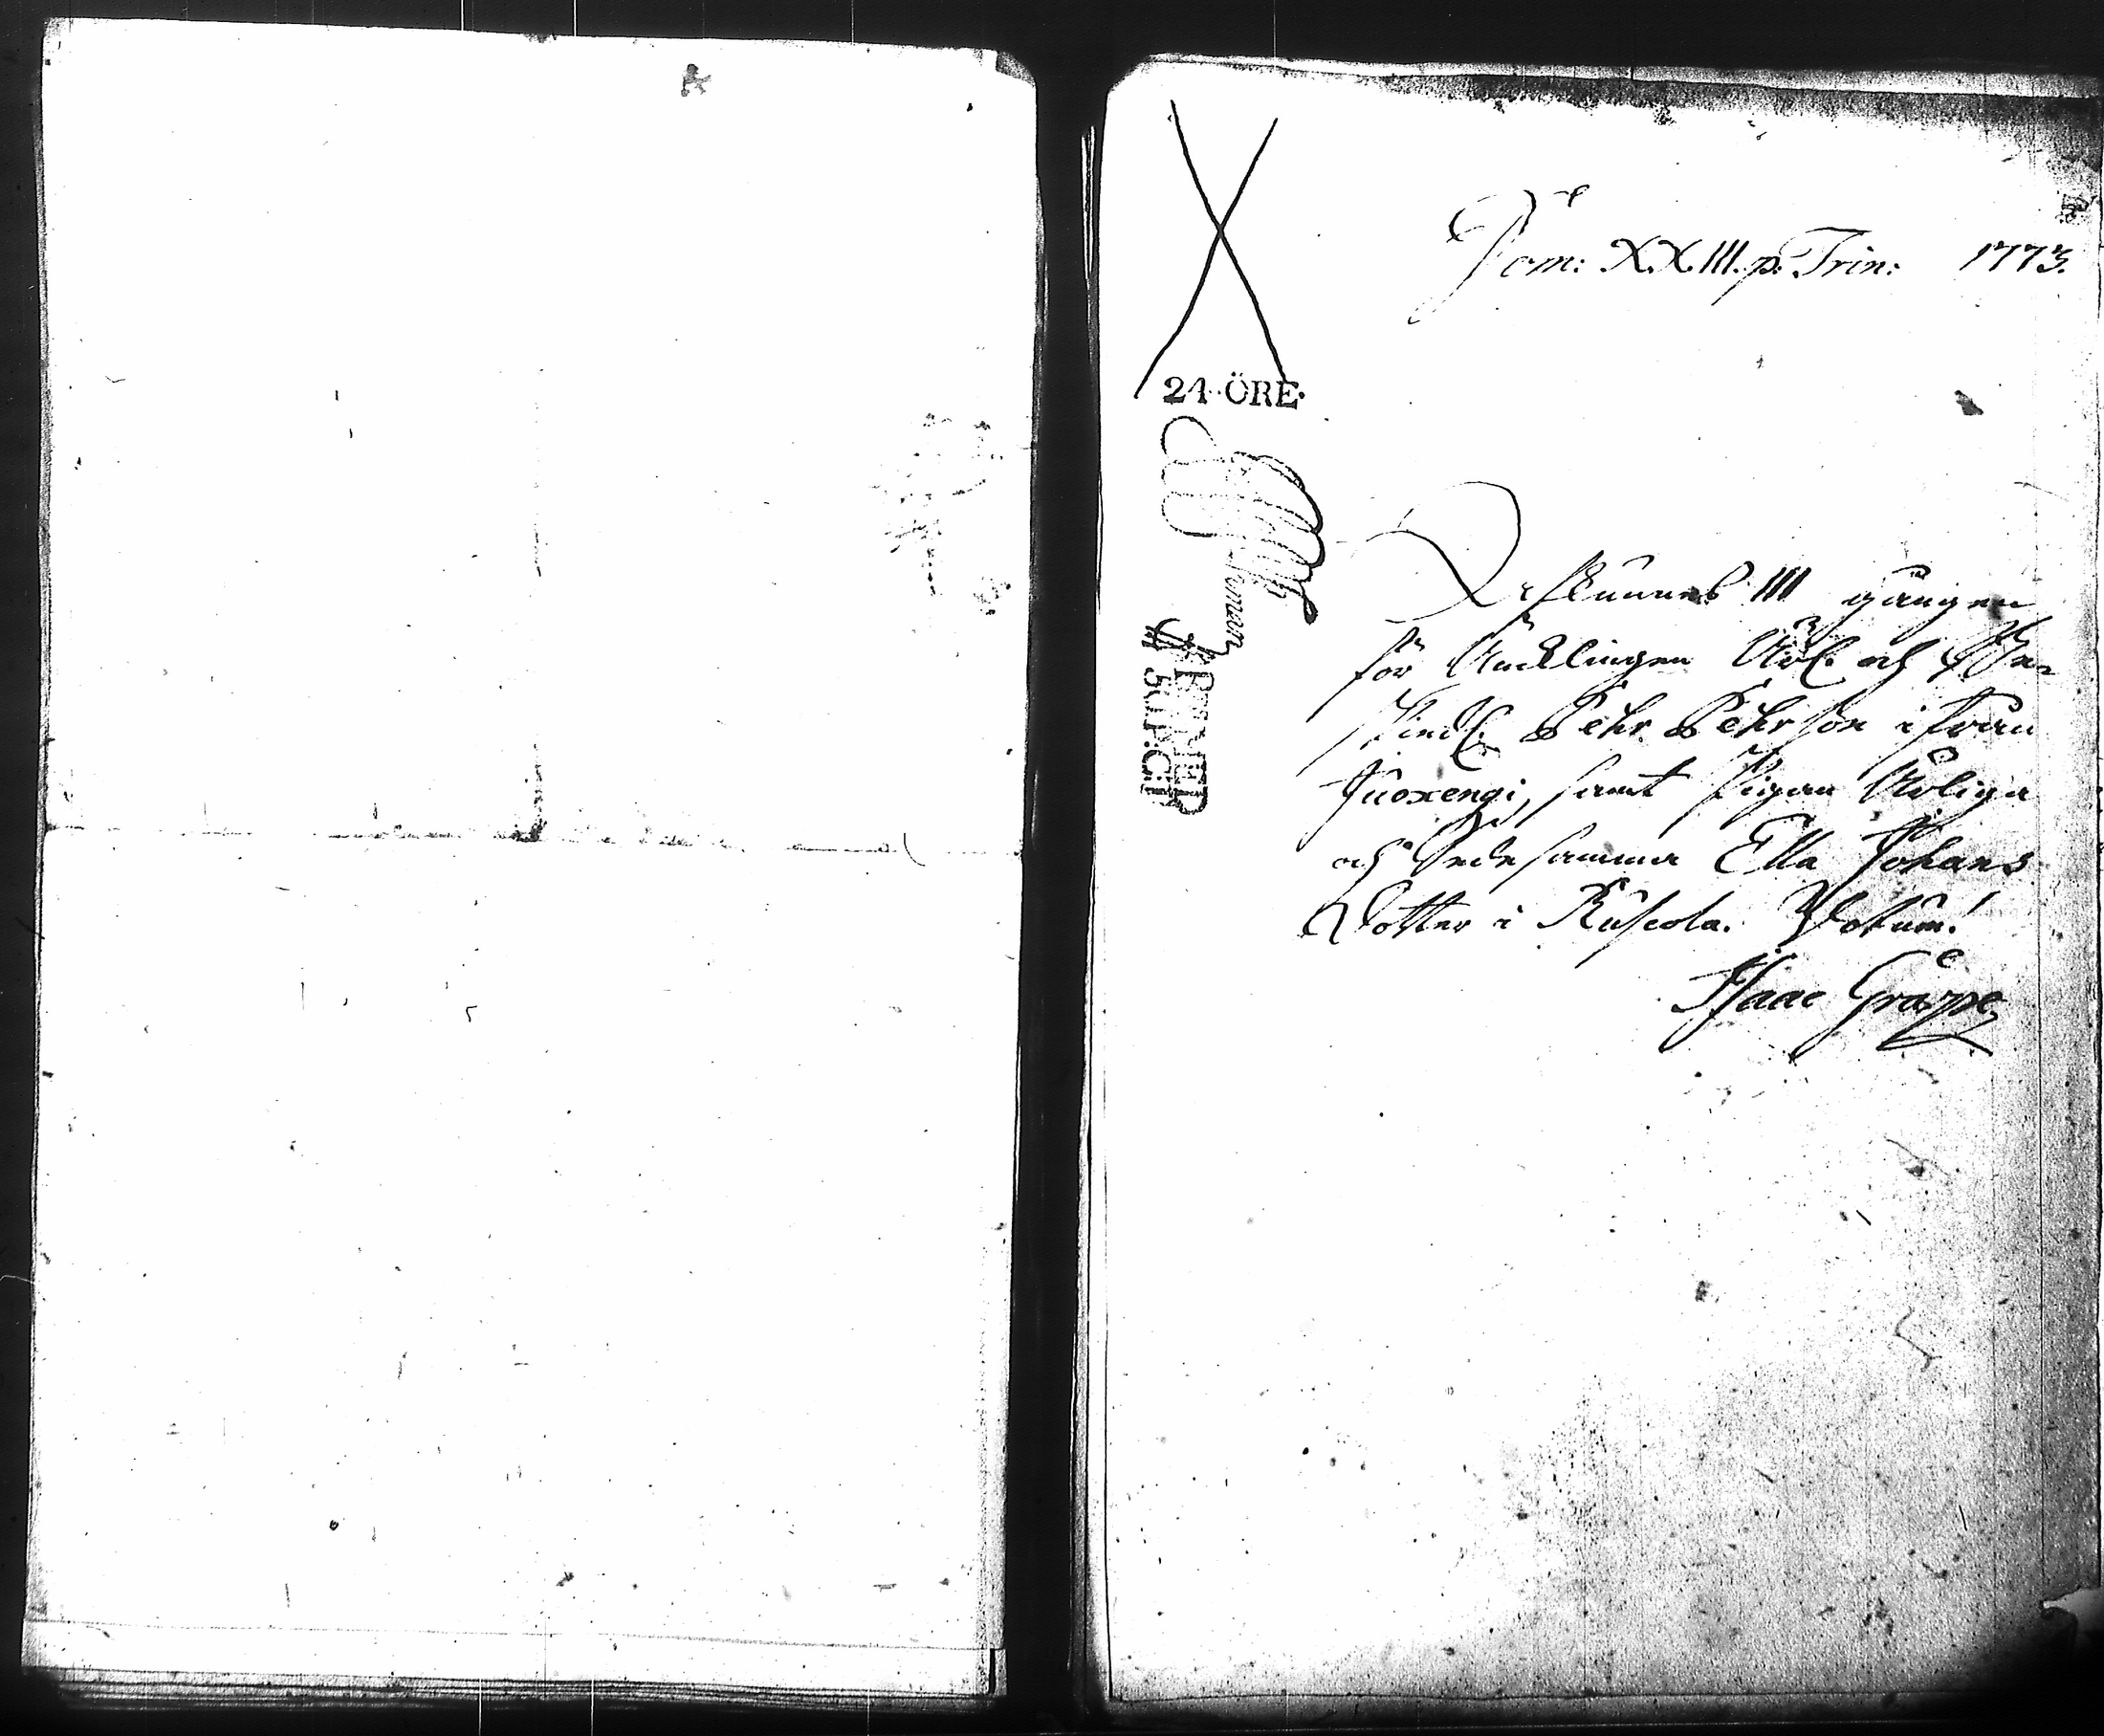 Dom: XXIII. p. Trin: 1773.
24 ÖRE.
Afkunnes III gången
för Ynglingen Ärl. och
Pehr Pehrson ifrån
Juoxengi, samt Pigan Ärliga
och Gudesamma Ella Johans
Dotter i Ruskola. Votum!
Isaac Grape